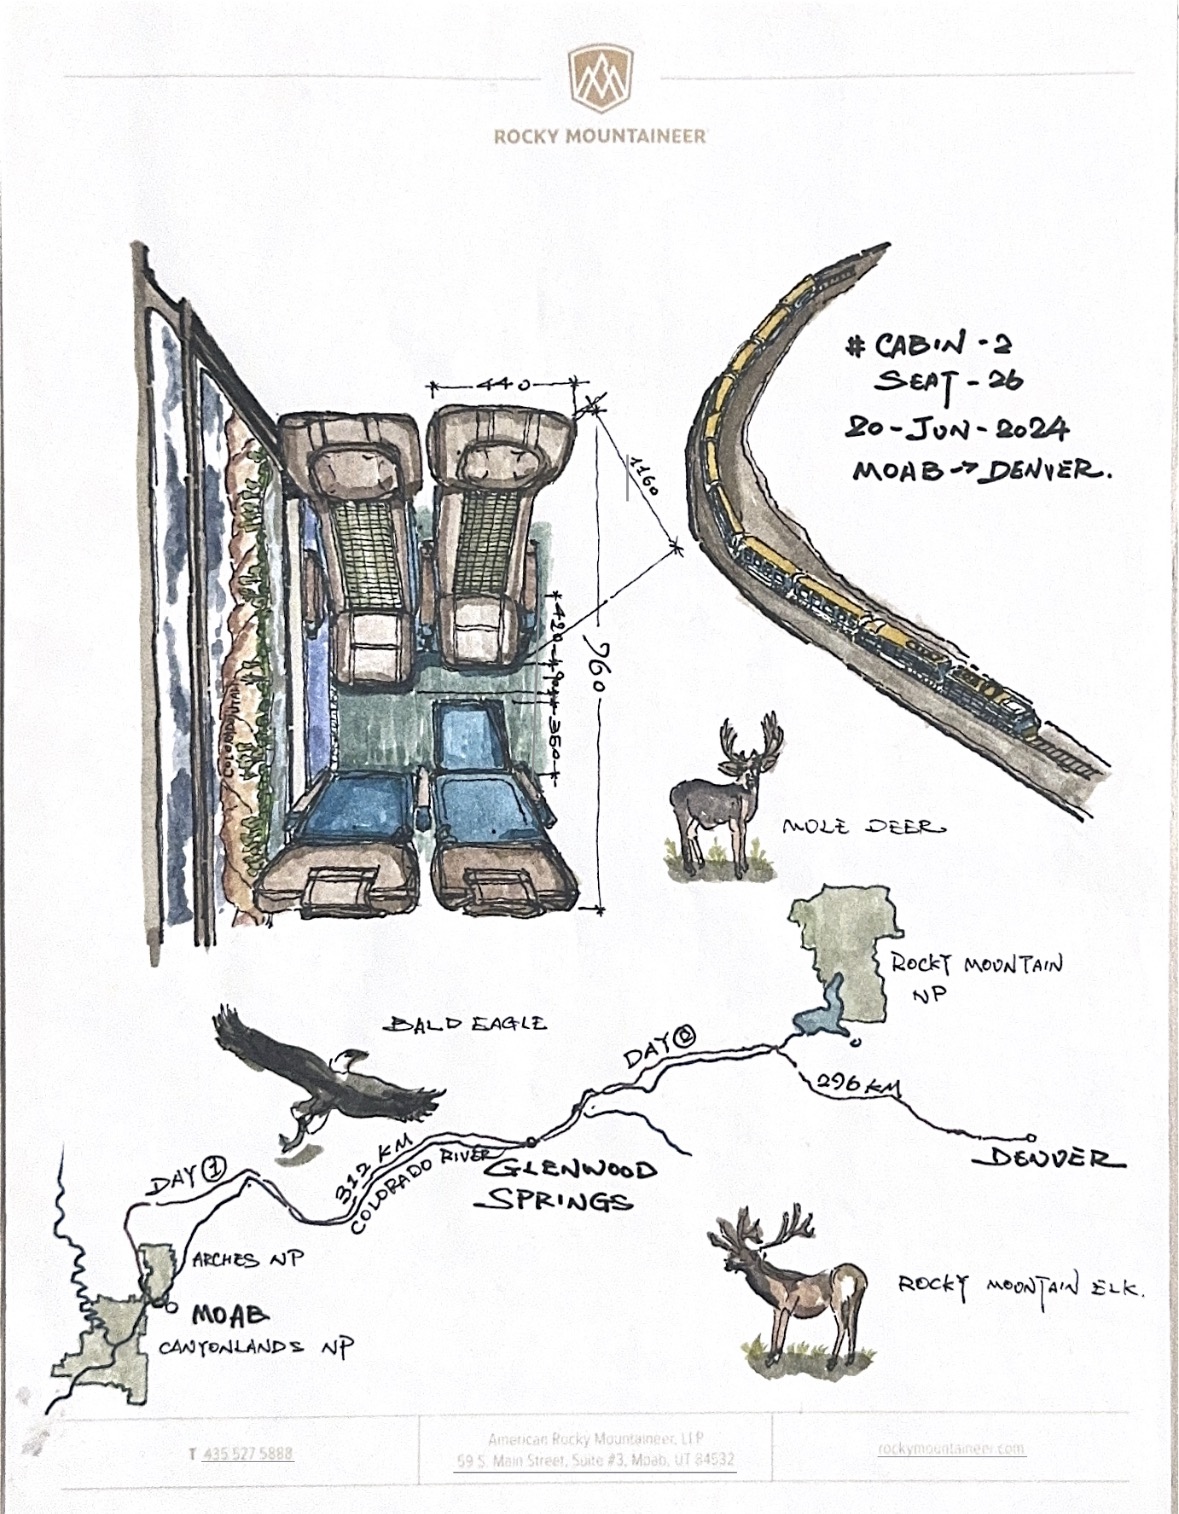 ROCKY MOUNTAINEER
# CABIN - 2
SEAT - 26
20 - JUN - 2024
MOAB -> DENVER.
440
1160
420
960
350
COLORADO
MULE DEER
ROCKY MOUNTAIN
NP
BALD EAGLE
DAY ②
296 KM
DENVER
DAY ①
312 KM
COLORADO RIVER
GLENWOOD
SPRINGS
ARCHES NP
MOAB
CANYONLANDS NP
ROCKY MOUNTAIN ELK.
T 435 527 5888
American Rocky Mountaineer, LLP
59 S. Main Street, Suite #3, Moab, UT 84532
rockymountaineer.com